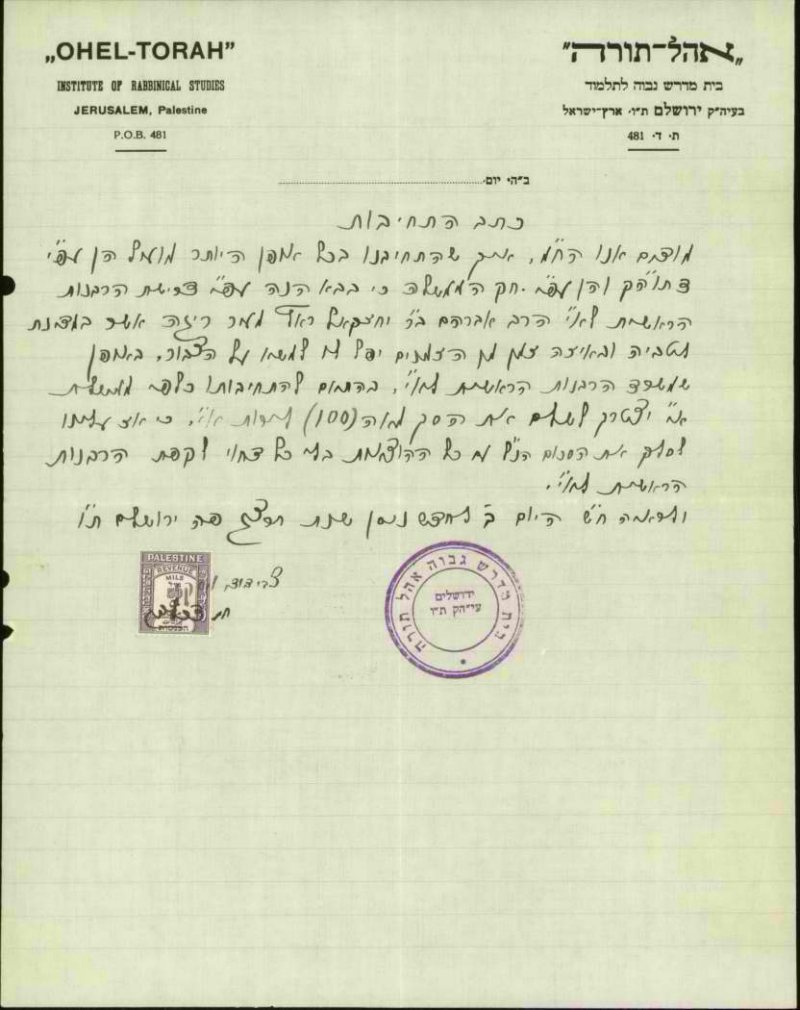 „OHEL-TORAH”
INSTITUTE OF RABBINICAL STUDIES
JERUSALEM, Palestine
P.O.B. 481
„אהל־תורה”
בית מדרש גבוה לתלמוד
בעיה״ק ירושלם ת״ו. ארץ־ישראל
ת. ד. 481
ב״ה. יום
כתב התחיבות
מודים אנו הח״מ, איך שהתחיבנו בכל אופן היותר מועיל הן עפ״י
חק הממשלה כי בבוא הנה עפ״י דרישת הרבנות
הראשית לא״י הרב אברהם ב״ר יחזקאל ראד מעיר ריגה אשר במדינת
לטביה ובאיזה זמן מן הזמנים יפל למשא על הצבור, באופן
שמשרד הרבנות הראשית לא״י, בהתאם להתחיבותו כלפי ממשלת
א״י יצטרך לשלם את הסך מאה (100) לירות א״י, כי אז עלינו
לסלק את הסכום הנ״ל עם כל ההוצאות בלי כל דחוי לקפת הרבנות
הראשית לא״י.
ולראיה ח״ש היום ב לחדש ניסן שנת תרצ״ג פה ירושלם ת״ו
PALESTINE
REVENUE
MILS
בית מדרש גבוה אהל תורה
ירושלים
עי״הק ת״ו